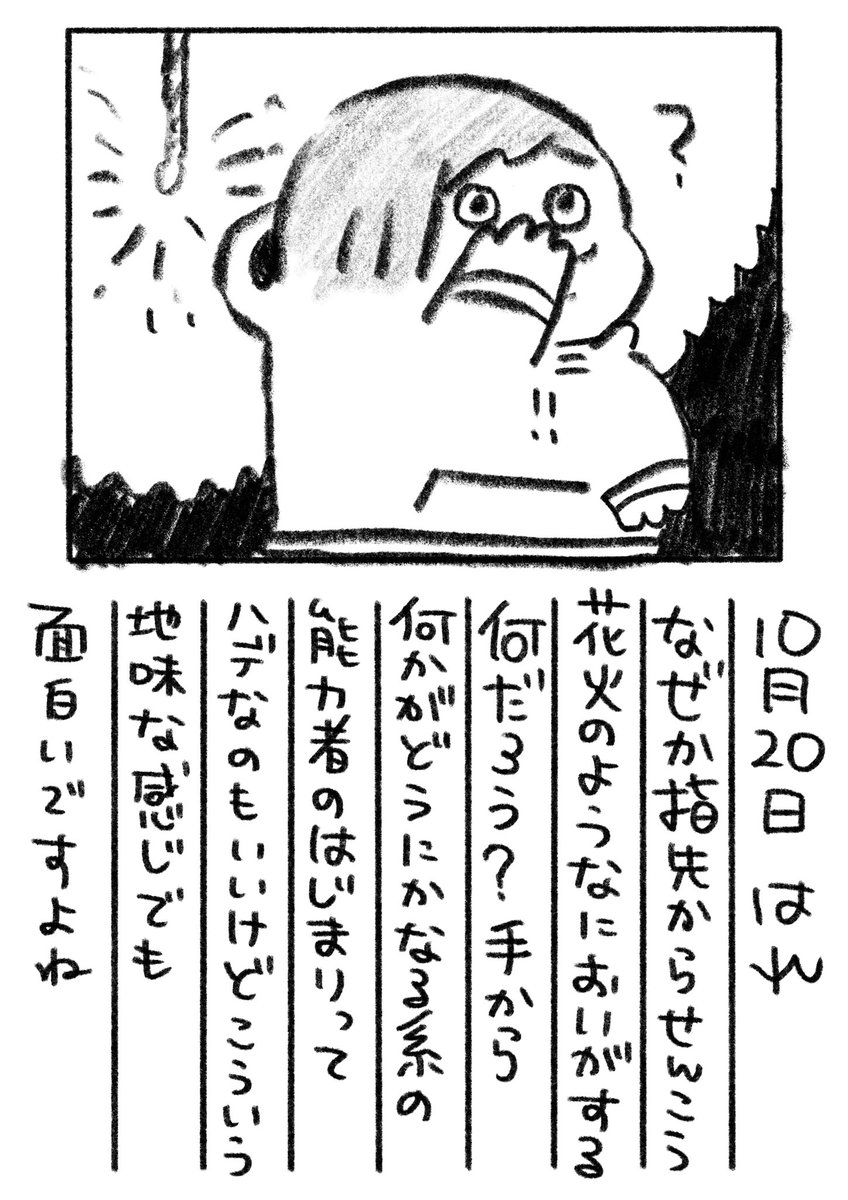 ?
10月20日 はれ
なぜか指先からせんこう
花火のようなにおいがする
何だろう?手から
何かがどうにかなる系の
能力者のはじまりって
ハデなのもいいけどこういう
地味な感じでも
面白いですよね